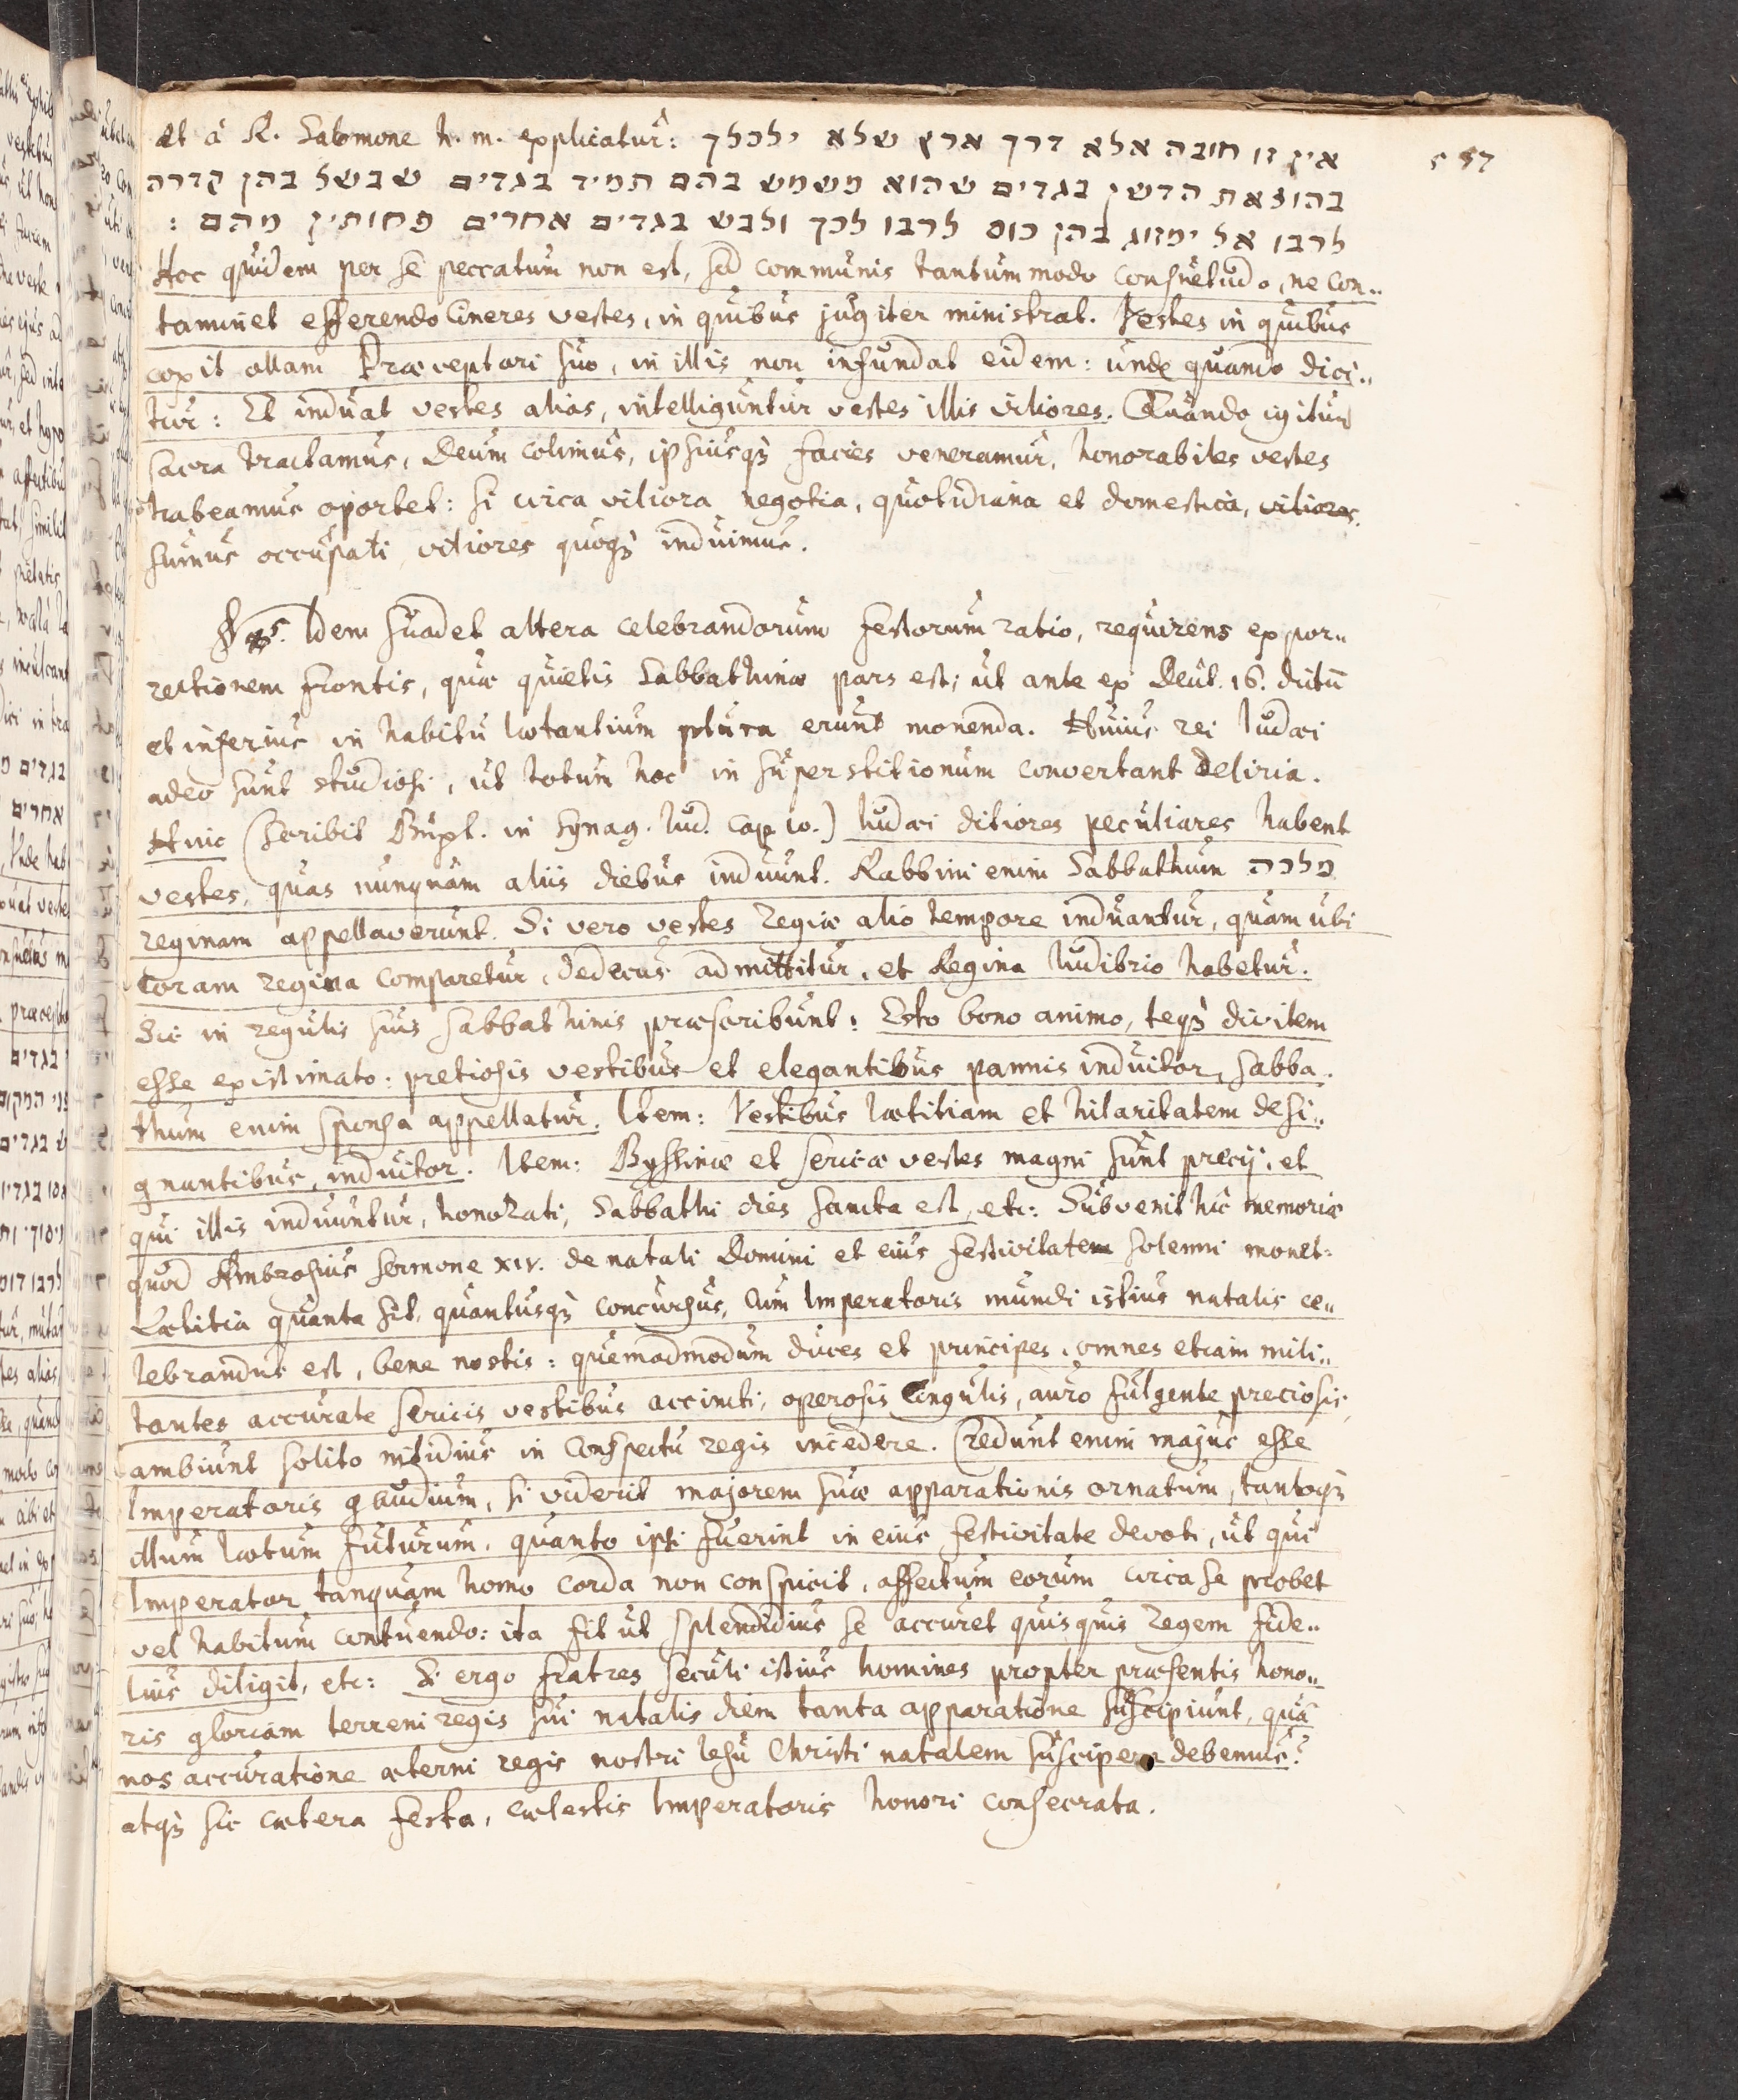 557
et à R. Salomone h. m. explicatur: אין זו חובה אלא דרך ארץ שלא ילכלך
בהוצאת הדשן בגדים שהוא משמש בהם תמיד בגדים שבשל בהן קדרה
לרבו אל ימזוג בהן כוס לרבו לכך ולבש בגדים אחרים פחותין מהם :
Hoc quidem per se peccatum non est, sed communis tantummodo consuetudo, ne con..
taminet efferendo cineres vestes, in quibus jugiter ministrat. Vestes in quibus
coxit ollam Præceptori suo, in illis non infundat eidem: unde quando dici..
tur: Et induat vestes alias, intelliguntur vestes illis viliores. Quando igitur
sacra tractamus, Deum colimus, ipsiusq; facies veneramur, honorabiles vestes
habeamus oportet: si circa viliora negotia, quotidiana et domestica, viliores
sumus occupati viliores quoq; induimus.
Idem suadet altera celebrandorum festorum ratio, requirens expor..
rectionem frontis, quæ quietis Sabbathinæ pars est; ut ante ex Deut. 16. dictū
et inferius in habitu lætantium plura erunt monenda. Huius rei Iudæi
adeo sunt studiosi, ut totum hoc in superstitionum convertant deliria.
Huic (scribit Buxt. in Synag. Iud. cap 10.) Iudæi ditiores peculiares habent
vestes, quas nunquam aliis diebus induunt. Rabbini enim Sabbathum מלכה
reginam appellaverunt. Si vero vestes regiæ alio tempore induantur, quam ubi
coram regina comparetur, dedecus admittitur, et Regina ludibrio habetur.
Sic in regulis suis sabbathinis præscribunt: Esto bono animo, teq; divitem
esse existimato: pretiosis vestibus et elegantibus pannis induitor, Sabba..
thum enim sponsa appellatur. Item: Vestibus lætitiam et hilaritatem desi..
gnantibus, induitor. Item: Byssinæ et sericæ vestes magni sunt precij, et
qui illis induuntur, honorati, Sabbathi dies sancta est, etc: Subvenit hic memoriæ
quod Ambrosius sermone XIV. de natali Domini et eius festivitatem solemni monet:
Lætitia quanta sit, quantusq; concursus, cum Imperatoris mundi istius natalis ce..
lebrandus est, bene nostis: quemadmodum duces et principes, omnes etiam mili..
tantes accurate sericis vestibus accincti, operosis cingulis, auro fulgente preciosis,
ambiunt solito nitidius in conspectu regis incedere. Credunt enim majus esse
Imperatoris gaudium, si viderit majorem suæ apparationis ornatum, tantoq;
illum lætum futurum, quanto ipsi fuerint in eius festivitate devoti, ut qui
Imperator tanquam homo corda non conspicit, affectum eorum circa se probet
vel habitum contuendo: ita fit ut splendidius se accuret quisquis regem fide..
lius diligit, etc: Si ergo fratres seculi istius homines propter præsentis hono..
ris gloriam terreni regis sui natalis diem tanta apparatione suscipiunt, quā
nos accuratione æterni regis nostri Iesu Christi natalem suscipere debemus?
atq; sic cætera festa, cælestis Imperatoris honori consecrata.